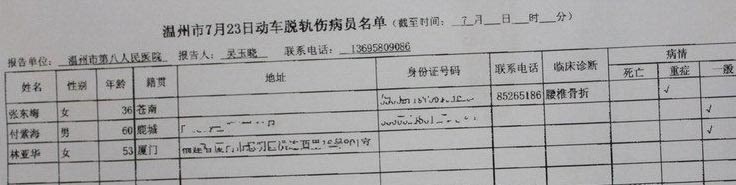 温州市7月23日动车脱轨伤病员名单（截至时间：7月__日__时__分）
报告单位：温州市第八人民医院 报告人：吴玉晓 联系电话：13695809086
病情
姓名 性别 年龄 籍贯 地址 身份证号码 联系电话 临床诊断 死亡 重症 一般
张东梅 女 36 苍南 85265186 腰椎骨折 √
付紫海 男 60 鹿城 √
林亚华 女 53 厦门 √